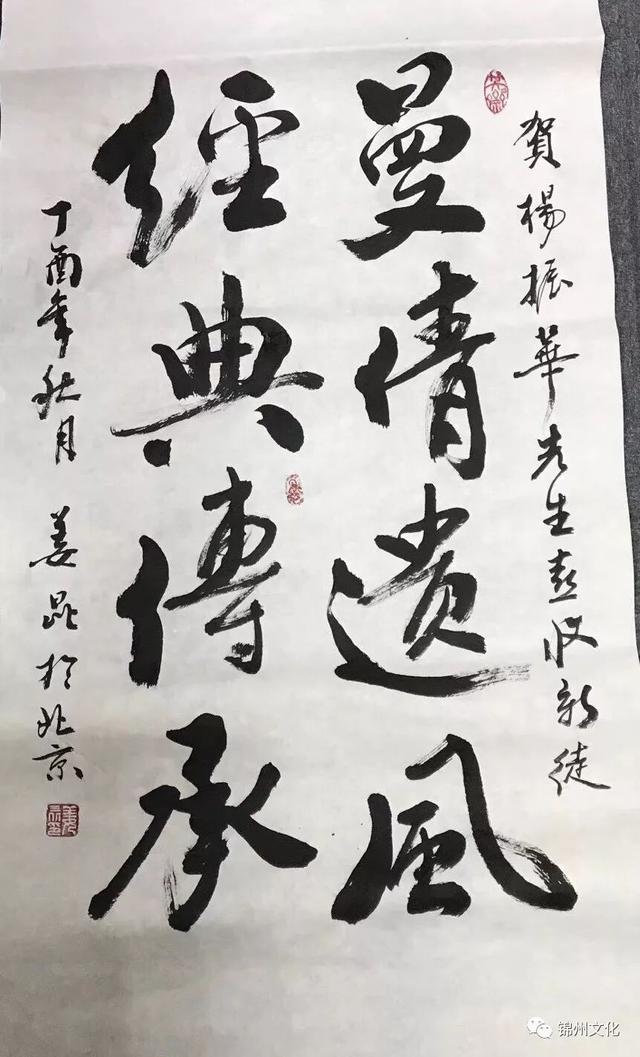 賀楊振華先生喜收新徒
曼倩遺風
經典傳承
丁酉年秋月 姜昆於北京
锦州文化